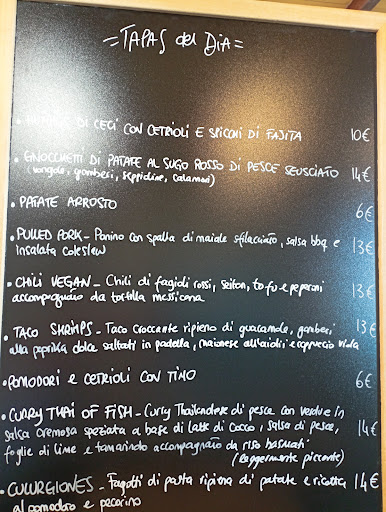 = TAPAS del DIA =
DI CECI CON CETRIOLI E SPICCHI DI FAJITA 10€
• GNOCCHETTI DI PATATE AL SUGO ROSSO DI PESCE SGUSCIATO 14€
(vongole, gamberi, seppioline, calamari)
• PATATE ARROSTO 6€
• PULLED PORK - Panino con spalla di maiale sfilacciato, salsa bbq e 13€
insalata coleslaw
• CHILI VEGAN - Chili di fagioli rossi, seitan, tofu e peperoni 13€
accompagnato da tortilla messicana
• TACO SHRIMPS - Taco croccante ripieno di guacamole, gamberi 13€
alla paprika dolce saltati in padella, maionese all'aioli e cappuccio viola
• POMODORI E CETRIOLI CON TIMO 6€
• CURRY THAI OF FISH - Curry Thailandese di pesce con verdure in
salsa cremosa speziata a base di latte di cocco, salsa di pesce, 14€
foglie di lime e tamarindo accompagnato da riso basmati
(leggermente piccante)
• CULURGIONES - Fagotti di pasta ripiena di patate e ricotta 14€
al pomodoro e pecorino